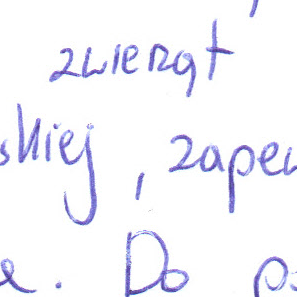 zwierząt
skiej, zapew
e. Do p